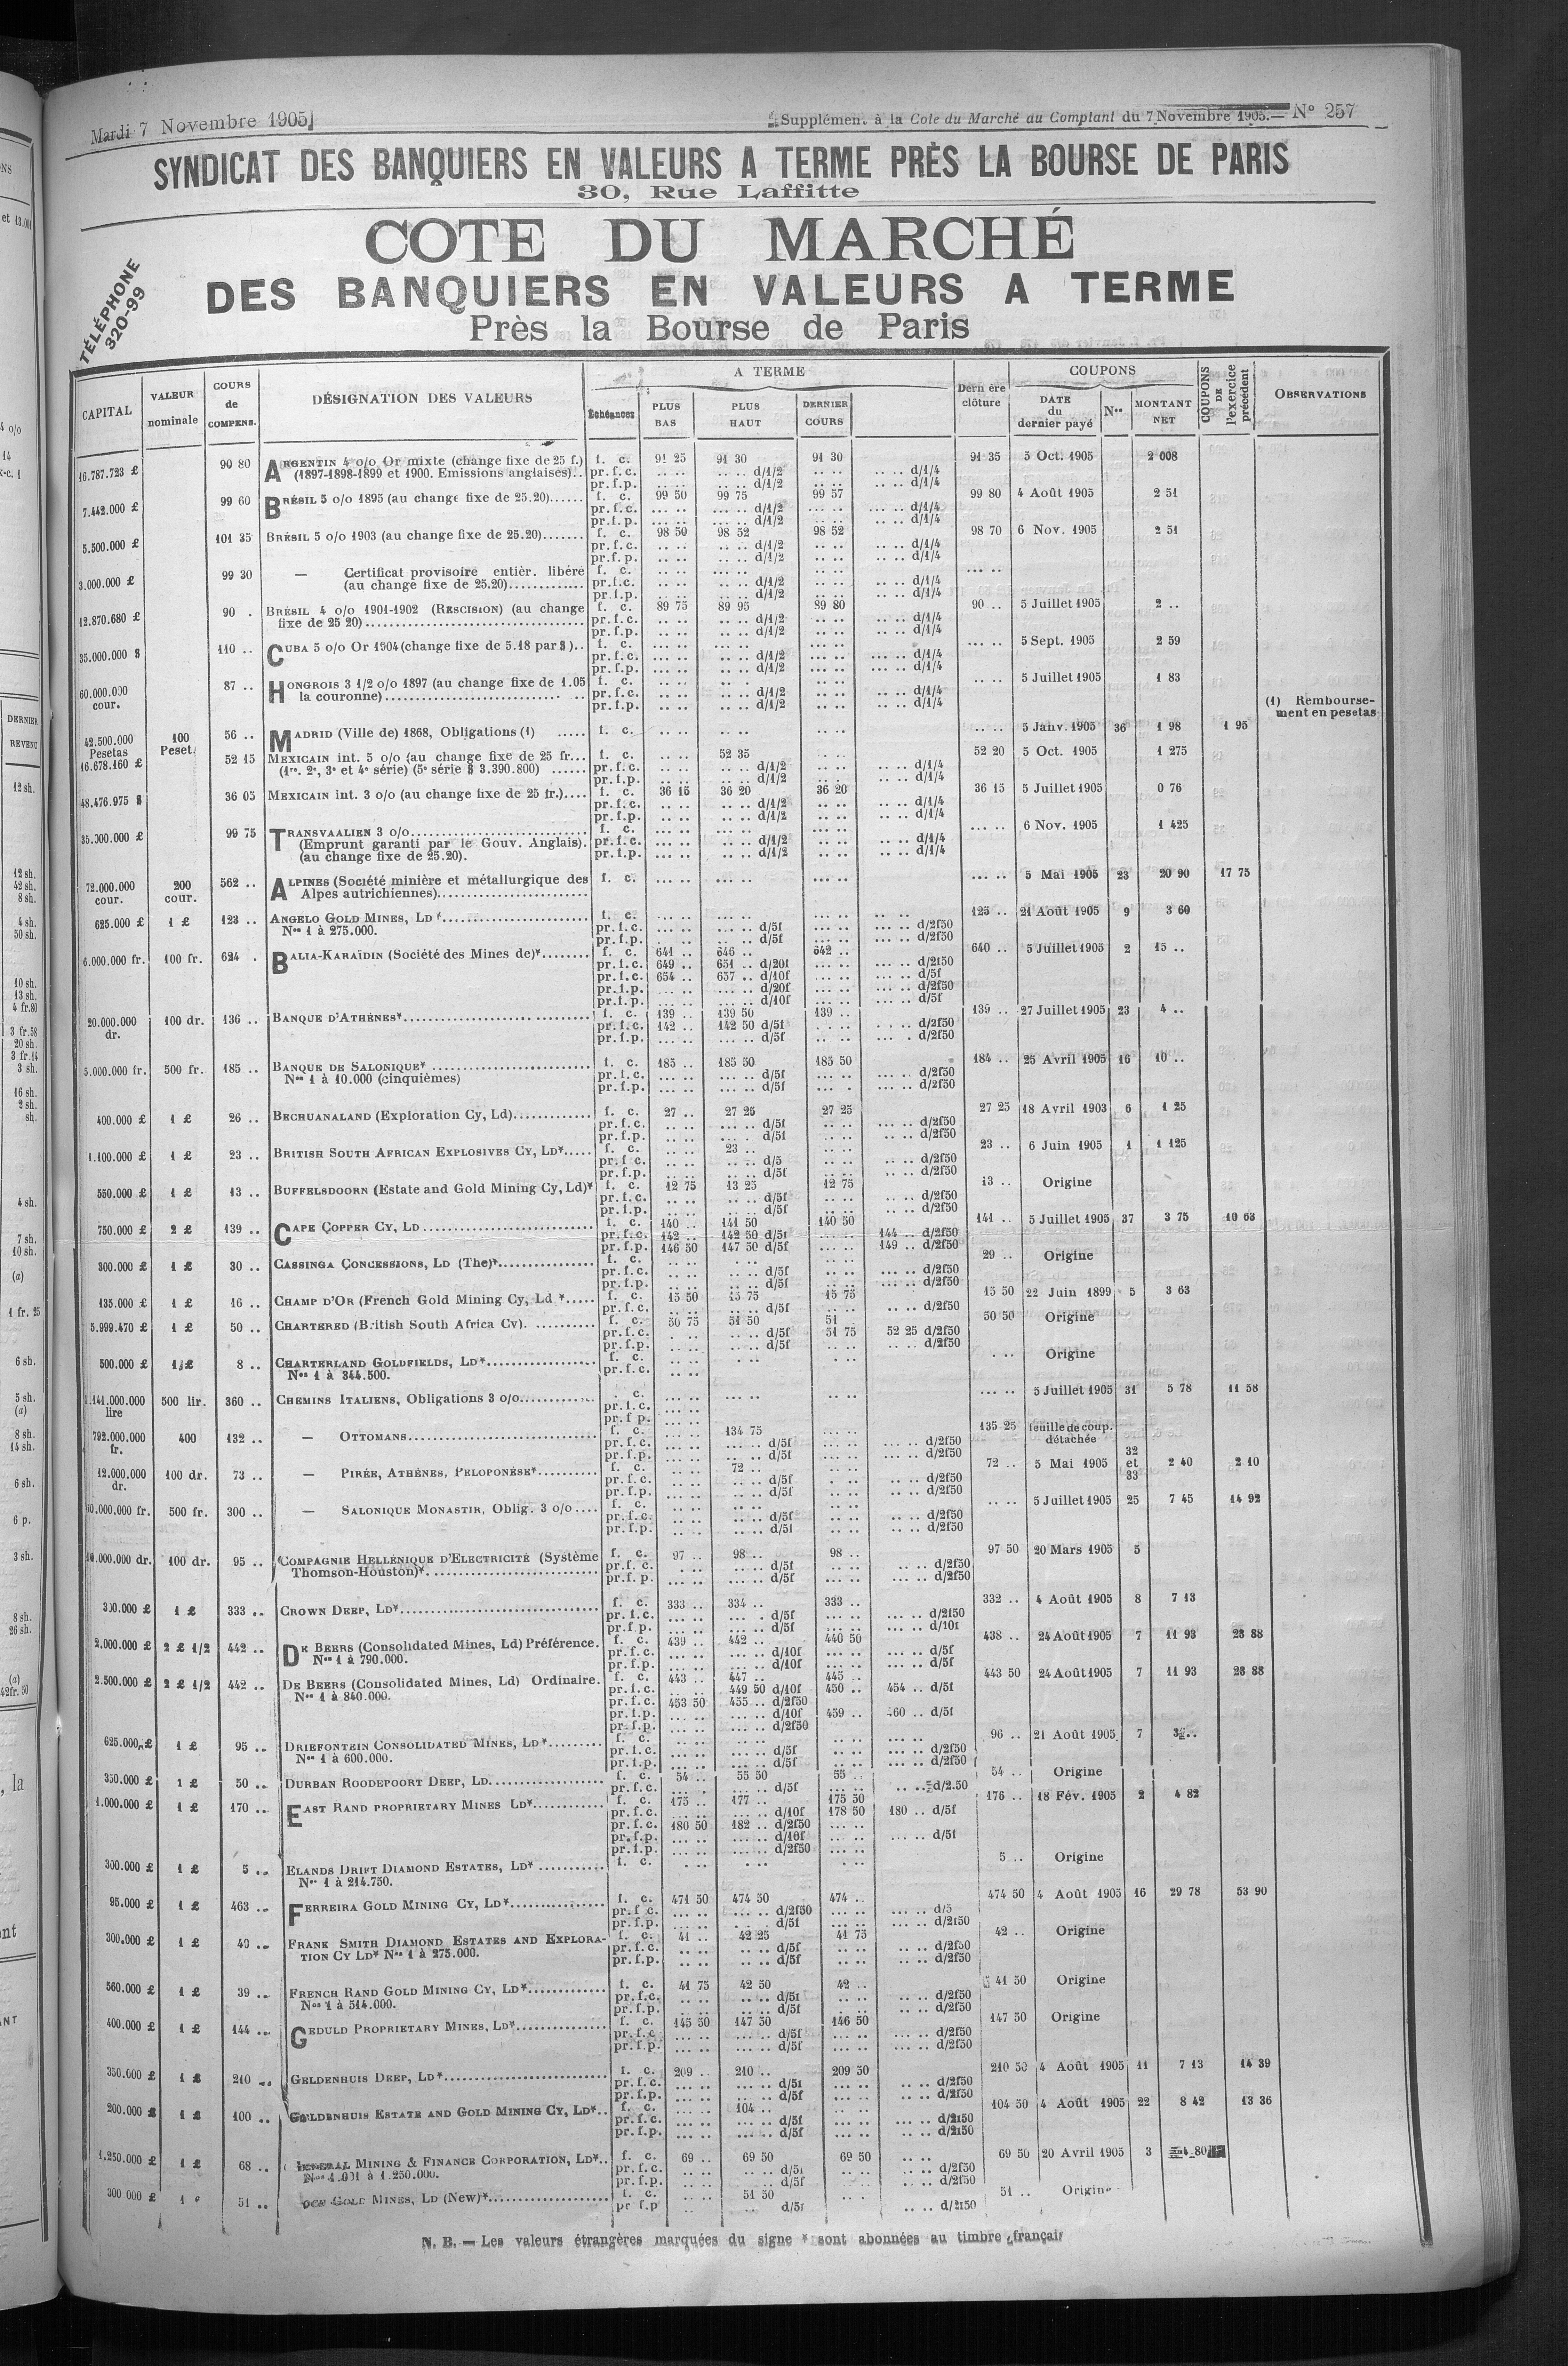 Mardi 7 Novembre 1905
Supplément à la Cote du Marché au Comptant du 7 Novembre 1905. — N° 257
SYNDICAT DES BANQUIERS EN VALEURS A TERME PRÈS LA BOURSE DE PARIS
30, Rue Laffitte
TÉLÉPHONE
320-99
COTE DU MARCHÉ
DES BANQUIERS EN VALEURS A TERME
Près la Bourse de Paris
CAPITAL | VALEUR nominale | COURS de COMPENS. | DÉSIGNATION DES VALEURS | Échéances | A TERME | PLUS BAS | PLUS HAUT | DERNIER COURS | Dern ère clôture | COUPONS | DATE du dernier payé | Nos | MONTANT NET | COUPONS DE l'exercice précédent | OBSERVATIONS
16.787.723 £ 90 80 ARGENTIN 4 o/o Or mixte (change fixe de 25 f.) f. c. 91 25 91 30 91 30 91 35 5 Oct. 1905 2 008
(1897-1898-1899 et 1900. Emissions anglaises).. pr.f.c. .. .. .. .. d/1/2 .. .. .. .. d/1/4
pr.f.p. .. .. .. .. d/1/2 .. .. .. .. d/1/4
7.442.000 £ 99 60 BRÉSIL 5 o/o 1895 (au change fixe de 25.20)...... f. c. 99 50 99 75 99 57 99 80 4 Août 1905 2 51
pr.f.c. d/1/2 d/1/4
pr.f.p. d/1/2 d/1/4
5.500.000 £ 101 35 BRÉSIL 5 o/o 1903 (au change fixe de 25.20)....... f. c. 98 50 98 52 98 52 98 70 6 Nov. 1905 2 51
pr.f.c. d/1/2 d/1/4
pr.f.p. d/1/2 d/1/4
3.000.000 £ 99 30 — Certificat provisoire entièr. libéré f. c.
(au change fixe de 25.20)............. pr.f.c. d/1/2 d/1/4
pr.f.p. d/1/2 d/1/4
12.870.680 £ 90 . BRÉSIL 4 o/o 1901-1902 (RESCISION) (au change f. c. 89 75 89 95 89 80 90 .. 5 Juillet 1905 2 ..
fixe de 25 20)................ pr.f.c. d/1/2 d/1/4
pr.f.p. d/1/2 d/1/4
35.000.000 $ 110 .. CUBA 5 o/o Or 1904 (change fixe de 5.18 par $).. f. c. 5 Sept. 1905 2 59
pr.f.c. d/1/2 d/1/4
pr.f.p. d/1/2 d/1/4
60.000.000 cour. 87 .. HONGROIS 3 1/2 o/o 1897 (au change fixe de 1.05 f. c. 5 Juillet 1905 1 83
la couronne)................ pr.f.c. d/1/2 d/1/4
pr.f.p. d/1/2 d/1/4 (1) Remboursement en pesetas
42.500.000 Pesetas 100 Peset. 56 .. MADRID (Ville de) 1868, Obligations (1) ..... f. c. 5 Janv. 1905 36 1 98 1 95
16.678.160 £ 52 15 MEXICAIN int. 5 o/o (au change fixe de 25 fr... f. c. 52 35 52 20 5 Oct. 1905 1 275
(1re, 2e, 3e et 4e série) (5e série $ 3.390.800) ...... pr.f.c. d/1/2 d/1/4
pr.f.p. d/1/2 d/1/4
48.476.975 $ 36 05 MEXICAIN int. 3 o/o (au change fixe de 25 fr.).... f. c. 36 15 36 20 36 20 36 15 5 Juillet 1905 0 76
pr.f.c. d/1/2 d/1/4
pr.f.p. d/1/2 d/1/4
35.000.000 £ 99 75 TRANSVAALIEN 3 o/o................ f. c. 6 Nov. 1905 1 425
(Emprunt garanti par le Gouv. Anglais). pr.f.c. d/1/2 d/1/4
(au change fixe de 25.20). pr.f.p. d/1/2 d/1/4
72.000.000 cour. 200 cour. 562 .. ALPINES (Société minière et métallurgique des f. c. 5 Mai 1905 23 20 90 17 75
Alpes autrichiennes)................
625.000 £ 1 £ 123 .. ANGELO GOLD MINES, LD*................ f. c. 125 .. 21 Août 1905 9 3 60
Nos 1 à 275.000. pr.f.c. d/5f d/2f50
pr.f.p. d/5f d/2f50
6.000.000 fr. 100 fr. 624 . BALIA-KARAÏDIN (Société des Mines de)*........ f. c. 641 .. 646 .. 642 .. 640 .. 5 Juillet 1905 2 15 ..
pr.f.c. 649 .. 651 .. d/20f d/2f50
pr.f.c. 654 .. 657 .. d/10f d/5f
pr.f.p. d/20f d/2f50
pr.f.p. d/10f d/5f
20.000.000 dr. 100 dr. 136 .. BANQUE D'ATHÈNES*................ f. c. 139 .. 139 50 139 .. 139 .. 27 Juillet 1905 23 4 ..
pr.f.c. 142 .. 142 50 d/5f d/2f50
pr.f.p. d/5f d/2f50
5.000.000 fr. 500 fr. 185 .. BANQUE DE SALONIQUE* ................ f. c. 185 .. 185 50 185 50 184 .. 25 Avril 1905 16 10 ..
Nos 1 à 10.000 (cinquièmes) pr.f.c. d/5f d/2f50
pr.f.p. d/5f d/2f50
400.000 £ 1 £ 26 .. BECHUANALAND (Exploration Cy, Ld)............. f. c. 27 .. 27 25 27 25 27 25 18 Avril 1903 6 1 25
pr.f.c. d/5f d/2f50
pr.f.p. d/5f d/2f50
1.100.000 £ 1 £ 23 .. BRITISH SOUTH AFRICAN EXPLOSIVES CY, LD*..... f. c. 23 .. 23 .. 6 Juin 1905 1 1 125
pr.f.c. d/5 d/2f50
pr.f.p. d/5f d/2f50
550.000 £ 1 £ 13 .. BUFFELSDOORN (Estate and Gold Mining Cy, Ld)* f. c. 12 75 13 25 12 75 13 .. Origine
pr.f.c. d/5f d/2f50
pr.f.p. d/5f d/2f50
750.000 £ 2 £ 139 .. CAPE COPPER CY, LD ................ f. c. 140 .. 141 50 140 50 141 .. 5 Juillet 1905 37 3 75 10 63
pr.f.c. 142 .. 142 50 d/5f 144 d/2f50
pr.f.p. 146 50 147 50 d/5f 149 .. d/2f50
300.000 £ 1 £ 30 .. CASSINGA CONCESSIONS, LD (The)*............... f. c. 29 .. Origine
pr.f.c. d/5f d/2f50
pr.f.p. d/5f d/2f50
135.000 £ 1 £ 16 .. CHAMP D'OR (French Gold Mining Cy, Ld *..... f. c. 15 50 15 75 15 75 15 50 22 Juin 1899 5 3 63
pr.f.c. d/5f d/2f50
5.999.470 £ 1 £ 50 .. CHARTERED (British South Africa Cy). .......... f. c. 50 75 51 50 51 50 50 Origine
pr.f.c. d/5f 51 75 52 25 d/2f50
pr.f.p. d/5f d/2f50
500.000 £ 1 £ 8 .. CHARTERLAND GOLDFIELDS, LD*................ f. c. Origine
Nos 1 à 344.500. pr.f.c.
1.141.000.000 lire 500 lir. 360 .. CHEMINS ITALIENS, Obligations 3 o/o............ c. 5 Juillet 1905 31 5 78 11 58
pr.f.c.
pr.f p.
792.000.000 fr. 400 132 .. — OTTOMANS................ f. c. 134 75 135 25 feuille de coup. détachée
pr.f.c. d/5f d/2f50
pr.f.p. d/5f d/2f50
12.000.000 dr. 100 dr. 73 .. — PIRÉE, ATHÈNES, PELOPONÈSE*.......... f. c. 72 .. 72 .. 5 Mai 1905 32 et 33 2 40 2 10
pr.f.c. d/5f d/2f50
pr.f.p. d/5f d/2f50
60.000.000 fr. 500 fr. 300 .. — SALONIQUE MONASTIR, Oblig. 3 o/o.... f. c. 5 Juillet 1905 25 7 45 14 92
pr.f.c. d/5f d/2f50
pr.f.p. d/5f d/2f50
10.000.000 dr. 100 dr. 95 .. COMPAGNIE HELLÉNIQUE D'ELECTRICITÉ (Système f. c. 97 .. 98 .. 98 .. 97 50 20 Mars 1905 5
Thomson-Houston)*................ pr.f.c. d/5f d/2f50
pr.f.p. d/5f d/2f50
300.000 £ 1 £ 333 .. CROWN DEEP, LD*................ f. c. 333 .. 334 .. 333 .. 332 .. 4 Août 1905 8 7 13
pr.f.c. d/5f d/2f50
pr.f.p. d/5f d/10f
2.000.000 £ 2 £ 1/2 442 .. DE BEERS (Consolidated Mines, Ld) Préférence. f. c. 439 .. 442 .. 440 50 438 .. 24 Août 1905 7 11 93 23 88
Nos 1 à 790.000. pr.f.c. d/10f d/5f
pr.f.p. d/10f d/5f
2.500.000 £ 2 £ 1/2 442 .. DE BEERS (Consolidated Mines, Ld) Ordinaire. f. c. 443 .. 447 .. 445 .. 443 50 24 Août 1905 7 11 93 23 88
Nos 1 à 840.000. pr.f.c. 449 50 d/10f 450 .. 454 .. d/5f
pr.f.c. 453 50 455 .. d/2f50
pr.f.p. d/10f 459 60 .. d/5f
pr.f.p. d/2f50
625.000 £ 1 £ 95 .. DRIEFONTEIN CONSOLIDATED MINES, LD*......... f. c. 96 .. 21 Août 1905 7 3 ..
Nos 1 à 600.000. pr.f.c. d/5f d/2f50
pr.f.p. d/5f d/2f50
350.000 £ 1 £ 50 .. DURBAN ROODEPOORT DEEP, LD................ f. c. 54 .. 55 50 55 .. 54 .. Origine
pr.f.c. d/5f d/2.50
1.000.000 £ 1 £ 170 .. EAST RAND PROPRIETARY MINES LD*............ f. c. 175 .. 177 .. 175 50 176 .. 18 Fév. 1905 2 4 82
pr.f.c. d/10f 178 50 180 .. d/5f
pr.f.c. 180 50 182 .. d/2f50
pr.f.p. d/10f d/5f
pr.f.p. d/2f50
300.000 £ 1 £ 5 .. ELANDS DRIFT DIAMOND ESTATES, LD* .......... f. c. 5 .. Origine
Nos 1 à 214.750.
95.000 £ 1 £ 463 .. FERREIRA GOLD MINING CY, LD*................ f. c. 471 50 474 50 474 .. 474 50 4 Août 1905 16 29 78 53 90
pr.f c. d/2f50 d/5
pr.f.p. d/5f d/2f50
300.000 £ 1 £ 40 .. FRANK SMITH DIAMOND ESTATES AND EXPLORA- f. c. 41 .. 42 25 41 75 42 .. Origine
TION CY LD* Nos 1 à 275.000. pr.f.c. d/5f d/2f50
pr.f.p. d/5f d/2f50
560.000 £ 1 £ 39 .. FRENCH RAND GOLD MINING CY, LD*............. f. c. 41 75 42 50 42 .. 41 50 Origine
Nos 1 à 514.000. pr.f.c. d/5f d/2f50
pr.f.p. d/5f d/2f50
400.000 £ 1 £ 144 .. GEDULD PROPRIETARY MINES, LD*............... f. c. 145 50 147 50 146 50 147 50 Origine
pr.f.c d/5f d/2f50
pr.f.p. d/5f d/2f50
350.000 £ 1 £ 210 .. GELDENHUIS DEEP, LD*................ f. c. 209 .. 210 .. 209 50 210 50 4 Août 1905 11 7 13 14 39
pr.f.c. d/5f d/2f50
pr.f.p. d/5f d/2f50
200.000 £ 1 £ 100 .. GELDENHUIS ESTATE AND GOLD MINING CY, LD*.. f. c. 104 .. 104 50 4 Août 1905 22 8 42 13 36
pr.f.c. d/5f d/2f50
pr.f.p. d/5f d/2f50
1.250.000 £ 1 £ 68 .. GENERAL MINING & FINANCE CORPORATION, LD*.. f. c. 69 .. 69 50 69 50 69 50 20 Avril 1905 3 4 80
Nos 1.001 à 1.250.000. pr.f.c. d/5f d/2f50
pr.f.p. d/5f d/2f50
300 000 £ 1 51 .. GOLD MINES, LD (New)*................ f. c. 51 50 51 .. Origine
pr f.p d/5f d/2f50
N. B. — Les valeurs étrangères marquées du signe * sont abonnées au timbre français